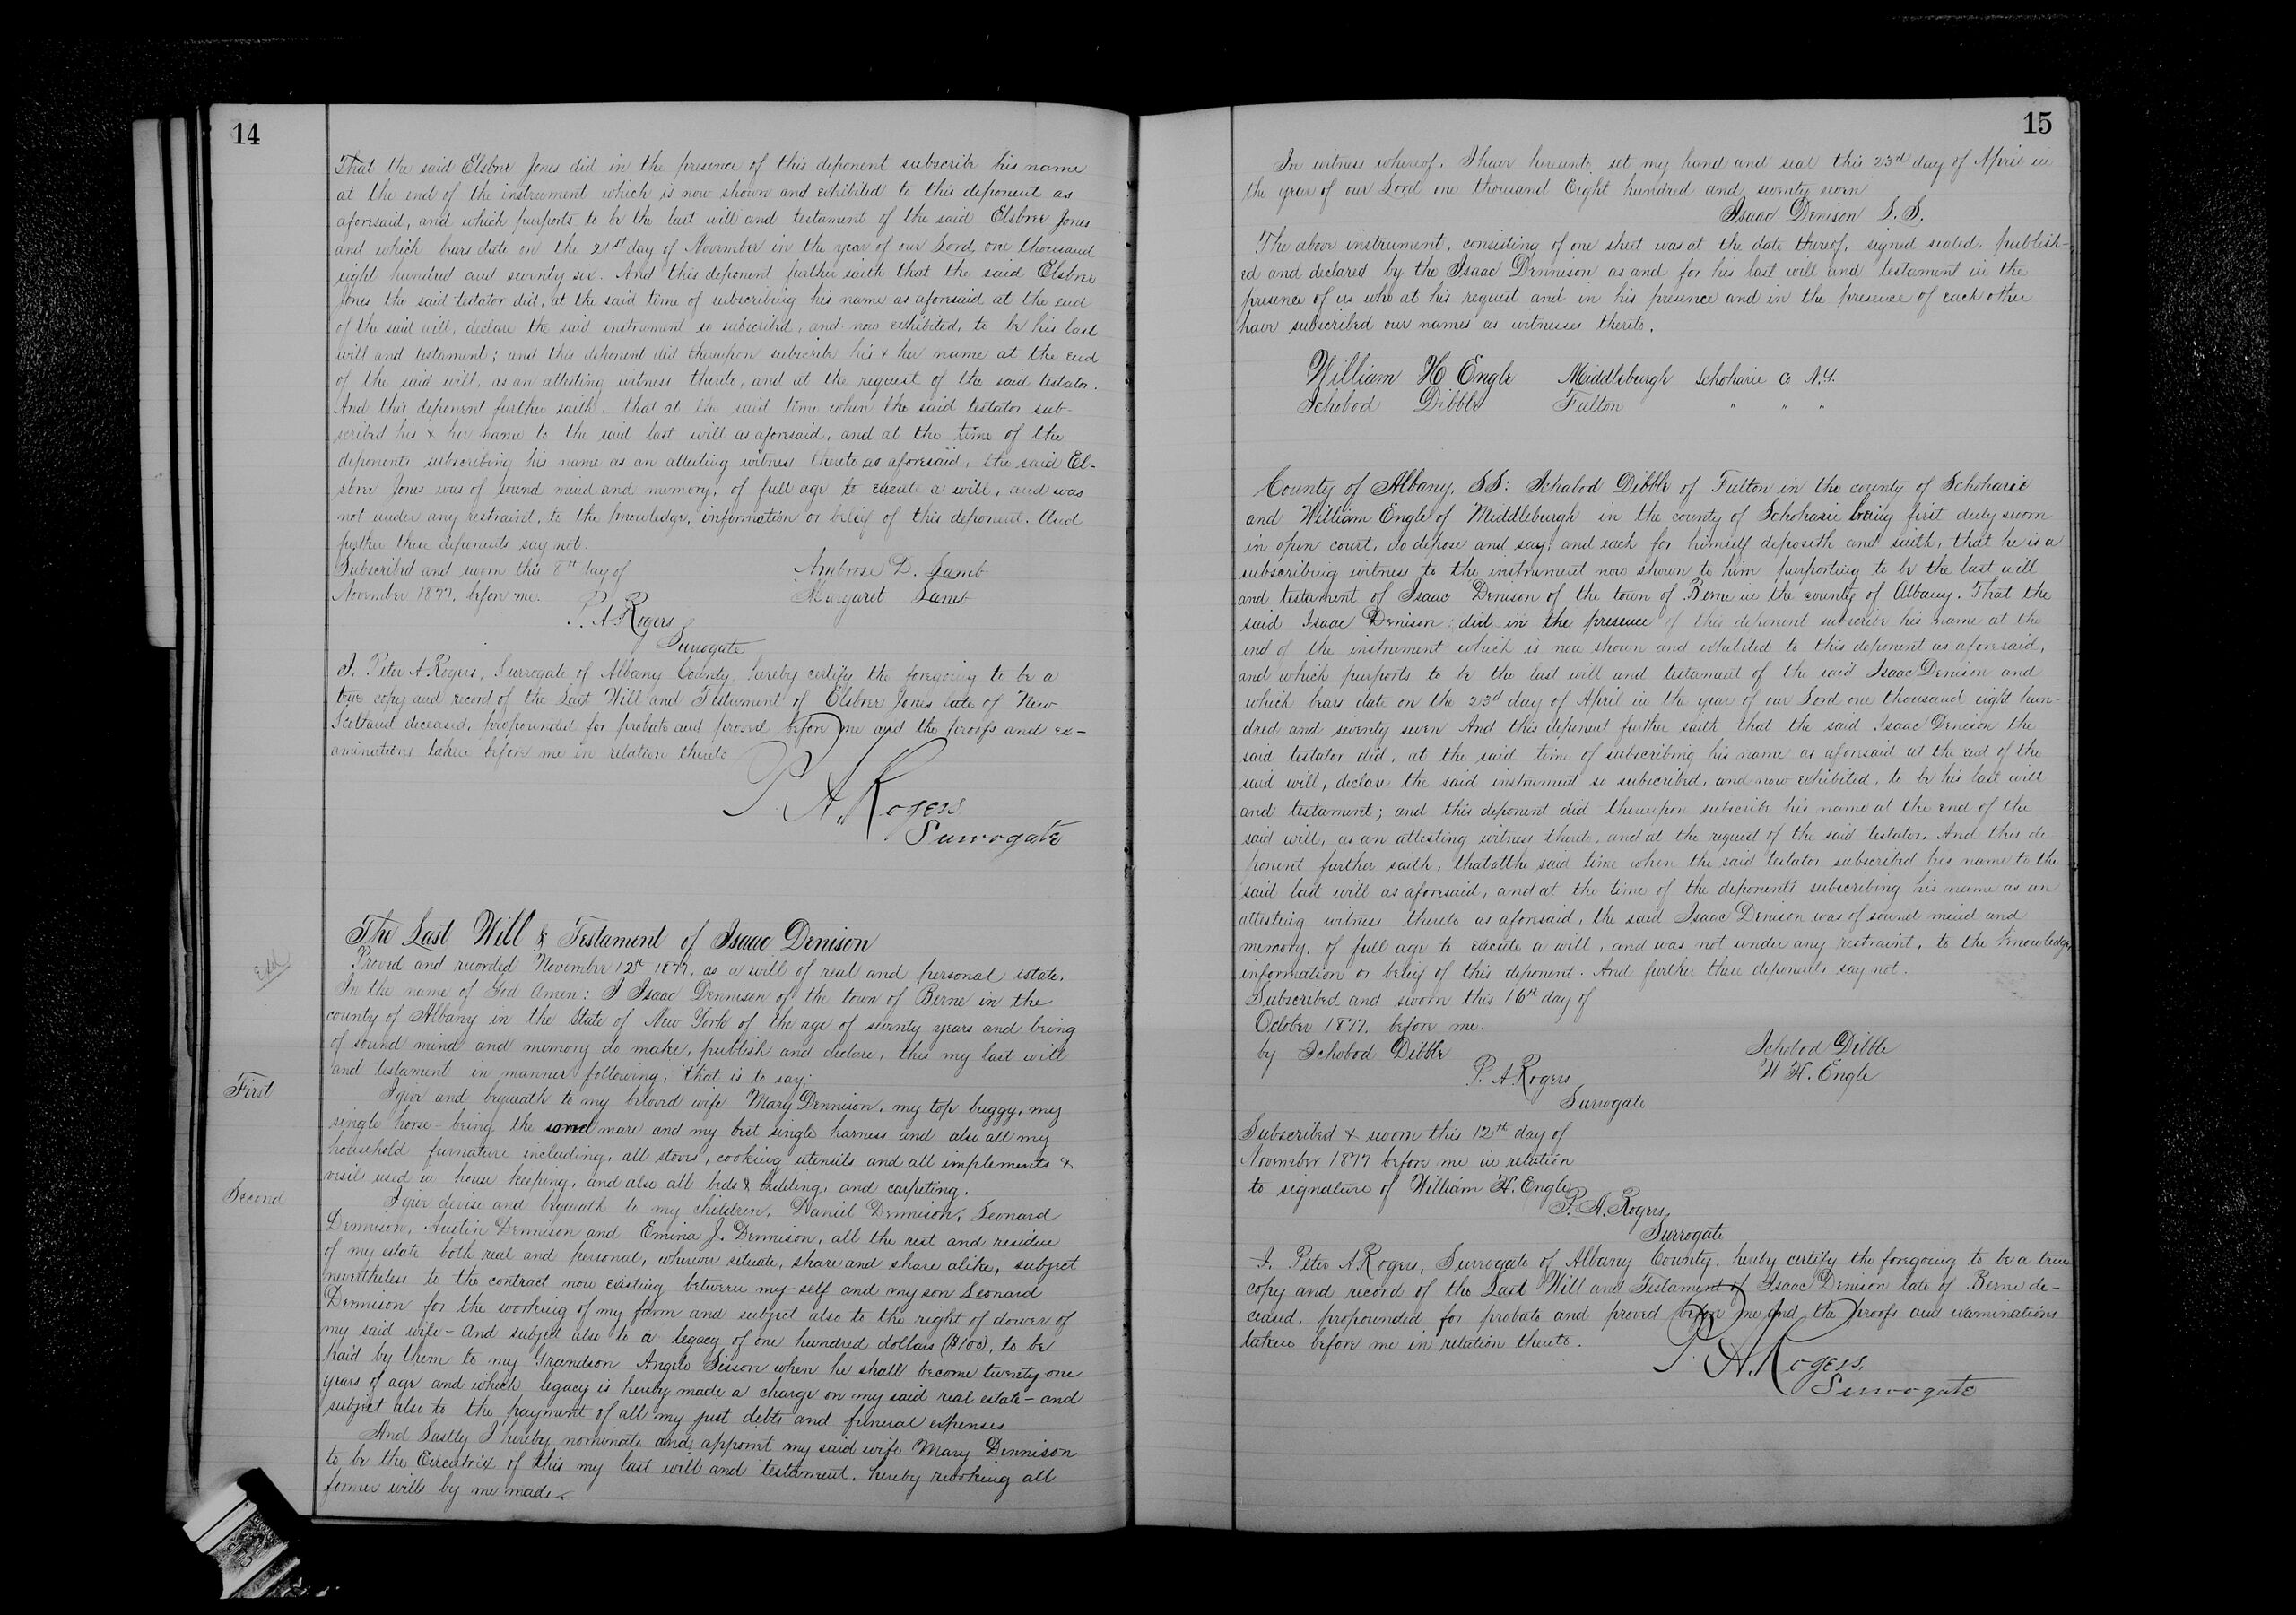 14
That the said Elsbree Jones did in the presence of this deponent subscribe his name
at the end of the instrument which is now shown and exhibited to this deponent as
aforesaid, and which purports to be the last will and testament of the said Elsbree Jones
and which bears date on the 21st day of November in the year of our Lord one thousand
eight hundred and seventy six. And this deponent further saith that the said Elsbree
Jones the said testator did, at the said time of subscribing his name as aforesaid at the end
of the said will, declare the said instrument so subscribed, and now exhibited, to be his last
will and testament; and this deponent did thereupon subscribe his & her name at the end
of the said will, as an attesting witness thereto, and at the request of the said testator.
And this deponent further saith, that at the said time when the said testator sub-
scribed his & her name to the said last will as aforesaid, and at the time of the
deponents subscribing his name as an attesting witness thereto as aforesaid, the said El-
sbree Jones was of sound mind and memory, of full age to execute a will, and was
not under any restraint, to the knowledge, information or belief of this deponent. And
further these deponents say not.
Subscribed and sworn this 8th day of Ambrose D. Lamb
November 1877. before me. Margaret Lamb
P. A. Rogers
Surrogate
I, Peter A Rogers, Surrogate of Albany County, hereby certify the foregoing to be a
true copy and record of the Last Will and Testament of Elsbree Jones late of New
Scotland deceased, propounded for probate and proved before me and the proofs and ex-
aminations taken before me in relation thereto
P. A. Rogers
Surrogate
The Last Will & Testament of Isaac Denison
Proved and recorded November 12th 1877, as a will of real and personal estate.
In the name of God Amen: I Isaac Dennison of the town of Berne in the
county of Albany in the State of New York of the age of seventy years and being
of sound mind and memory do make, publish and declare, this my last will
and testament in manner following, that is to say;
First I give and bequeath to my beloved wife Mary Dennison, my top buggy, my
single horse - being the sorrel mare and my best single harness and also all my
household furnature including, all stoves, cooking utensils and all implements &
vesils used in house keeping, and also all beds & bedding, and carpeting.
Second I give devise and bequeath to my children, Daniel Dennison, Leonard
Dennison, Austin Dennison and Emina J. Dennison, all the rest and residue
of my estate both real and personal, wherever situate, share and share alike, subject
nevertheless to the contract now existing between my-self and my son Leonard
Dennison for the working of my farm and subject also to the right of dower of
my said wife - And subject also to a legacy of one hundred dollars ($100), to be
paid by them to my Grandson Angelo Sisson when he shall become twenty one
years of age and which legacy is hereby made a charge on my said real estate - and
subject also to the payment of all my just debts and funeral expenses
And Lastly I hereby nominate and appoint my said wife Mary Dennison
to be the Executrix of this my last will and testament, hereby revoking all
former wills by me made.
15
In witness whereof, I have hereunto set my hand and seal this 23rd day of April in
the year of our Lord one thousand Eight hundred and seventy seven
Isaac Denison L. S.
The above instrument, consisting of one sheet was at the date thereof, signed sealed, publish-
ed and declared by the Isaac Dennison as and for his last will and testament in the
presence of us who at his request and in his presence and in the presence of each other
have subscribed our names as witnesses thereto.
William H Engle Middleburgh Schoharie Co N.Y.
Ichobod Dibble Fulton " " "
County of Albany, SS: Ichabod Dibble of Fulton in the county of Schoharie
and William Engle of Middleburgh in the county of Schoharie being first duly sworn
in open court, do depose and say; and each for himself deposeth and saith, that he is a
subscribing witness to the instrument now shown to him purporting to be the last will
and testament of Isaac Denison of the town of Berne in the county of Albany. That the
said Isaac Denison did in the presence of this deponent subscribe his name at the
end of the instrument which is now shown and exhibited to this deponent as aforesaid,
and which purports to be the last will and testament of the said Isaac Denison and
which bears date on the 23d day of April in the year of our Lord one thousand eight hun-
dred and seventy seven And this deponent further saith that the said Isaac Denison the
said testator did, at the said time of subscribing his name as aforesaid at the end of the
said will, declare the said instrument so subscribed, and now exhibited, to be his last will
and testament; and this deponent did thereupon subscribe his name at the end of the
said will, as an attesting witness thereto, and at the request of the said testator. And this de
ponent further saith, that at the said time when the said testator subscribed his name to the
said last will as aforesaid, and at the time of the deponents subscribing his name as an
attesting witness thereto as aforesaid, the said Isaac Denison was of sound mind and
memory, of full age to execute a will, and was not under any restraint, to the knowledge,
information or belief of this deponent. And further these deponents say not.
Subscribed and sworn this 16th day of
October 1877. before me.
by Ichobod Dibble Ichobod Dibble
P. A Rogers W H. Engle
Surrogate
Subscribed & sworn this 12th day of
November 1877 before me in relation
to signature of William H. Engle
P. A. Rogers,
Surrogate
I, Peter A Rogers, Surrogate of Albany County, hereby certify the foregoing to be a true
copy and record of the Last Will and Testament of Isaac Denison late of Berne de-
ceased, propounded for probate and proved before me and the proofs and examinations
taken before me in relation thereto.
P. A. Rogers,
Surrogate